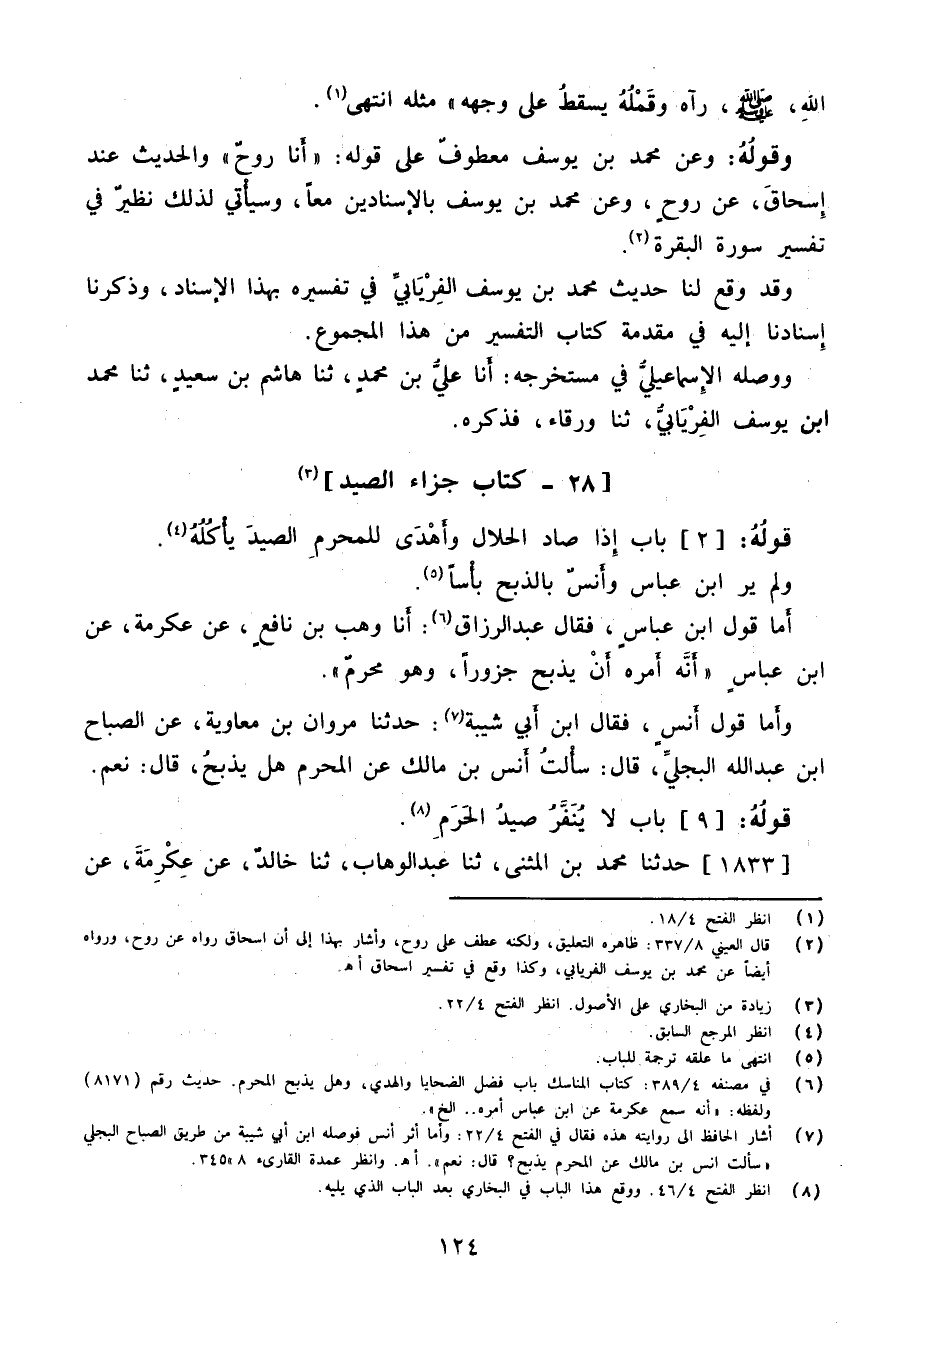 اللهِ، ﷺ، رآه وقَمْلُهُ يسقطُ على وجهه» مثله انتهى(١).
وقولُهُ: وعن محمد بن يوسف معطوفٌ على قوله: «أَنا روحٌ» والحديث عند
إِسحاقَ، عن روحٍ، وعن محمد بن يوسف بالإسنادين معاً، وسيأْتي لذلك نظيرٌ في
تفسير سورة البقرة(٢).
وقد وقع لنا حديث محمد بن يوسف الفِرْيَابيِّ في تفسيره بهذا الإسناد، وذكرنا
إسنادنا إليه في مقدمة كتاب التفسير من هذا المجموع.
ووصله الإِسماعيليُّ في مستخرجه: أَنا عليُّ بن محمدٍ، ثنا هاشم بن سعيدٍ، ثنا محمد
ابن يوسف الفِرْيَابيُّ، ثنا ورقاء، فذكره.
[٢٨ - كتاب جزاء الصيد](٣)
قولُهُ: [٢] باب إِذا صاد الحلال وأَهْدَى للمحرمِ الصيدَ يأْكُلُهُ(٤).
ولم ير ابن عباس وأَنسٌ بالذبح بأْساً(٥).
أَما قول ابن عباسٍ، فقال عبدالرزاق(٦): أَنا وهب بن نافعٍ، عن عكرمة، عن
ابن عباسٍ «أَنَّه أَمره أَنْ يذبح جزوراً، وهو محرمٌ».
وأَما قول أَنسٍ، فقال ابن أَبي شيبة(٧): حدثنا مروان بن معاوية، عن الصباح
ابن عبدالله البجليِّ، قال: سأَلتُ أَنس بن مالك عن المحرم هل يذبحُ، قال: نعم.
قولُهُ: [٩] باب لا يُنَفَّرُ صيدُ الحَرَمِ(٨).
[١٨٣٣] حدثنا محمد بن المثنى، ثنا عبدالوهاب، ثنا خالدٌ، عن عِكْرِمَةَ، عن
(١) انظر الفتح ١٨/٤.
(٢) قال العيني ٣٣٧/٨: ظاهره التعليق، ولكنه عطف على روح، وأشار بهذا إلى أن اسحاق رواه عن روح، ورواه
أيضاً عن محمد بن يوسف الفريابي، وكذا وقع في تفسير اسحاق أهـ.
(٣) زيادة من البخاري على الأصول. انظر الفتح ٢٢/٤.
(٤) انظر المرجع السابق.
(٥) انتهى ما علقه ترجمة للباب.
(٦) في مصنفه ٣٨٩/٤: كتاب المناسك باب فضل الضحايا والهدي، وهل يذبح المحرم. حديث رقم (٨١٧١)
ولفظه: «أنه سمع عكرمة عن ابن عباس أمره.. الخ».
(٧) أشار الحافظ الى روايته هذه فقال في الفتح ٢٢/٤: وأما أثر أنس فوصله ابن أبي شيبة من طريق الصباح البجلي
«سألت انس بن مالك عن المحرم يذبح؟ قال: نعم». أهـ. وانظر عمدة القارىء ٨»٣٤٥.
(٨) انظر الفتح ٤٦/٤. ووقع هذا الباب في البخاري بعد الباب الذي يليه.
١٢٤